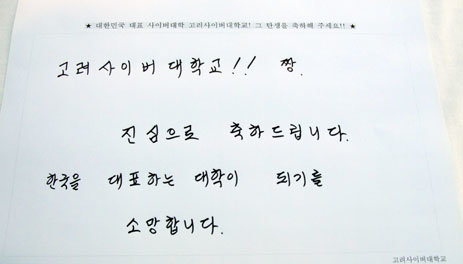 ★ 대한민국 대표 사이버대학 고려사이버대학교! 그 탄생을 축하해 주세요!! ★
고려사이버대학교!! 짱.
진심으로 축하드립니다.
한국을 대표하는 대학이 되기를
소망합니다.
고려사이버대학교